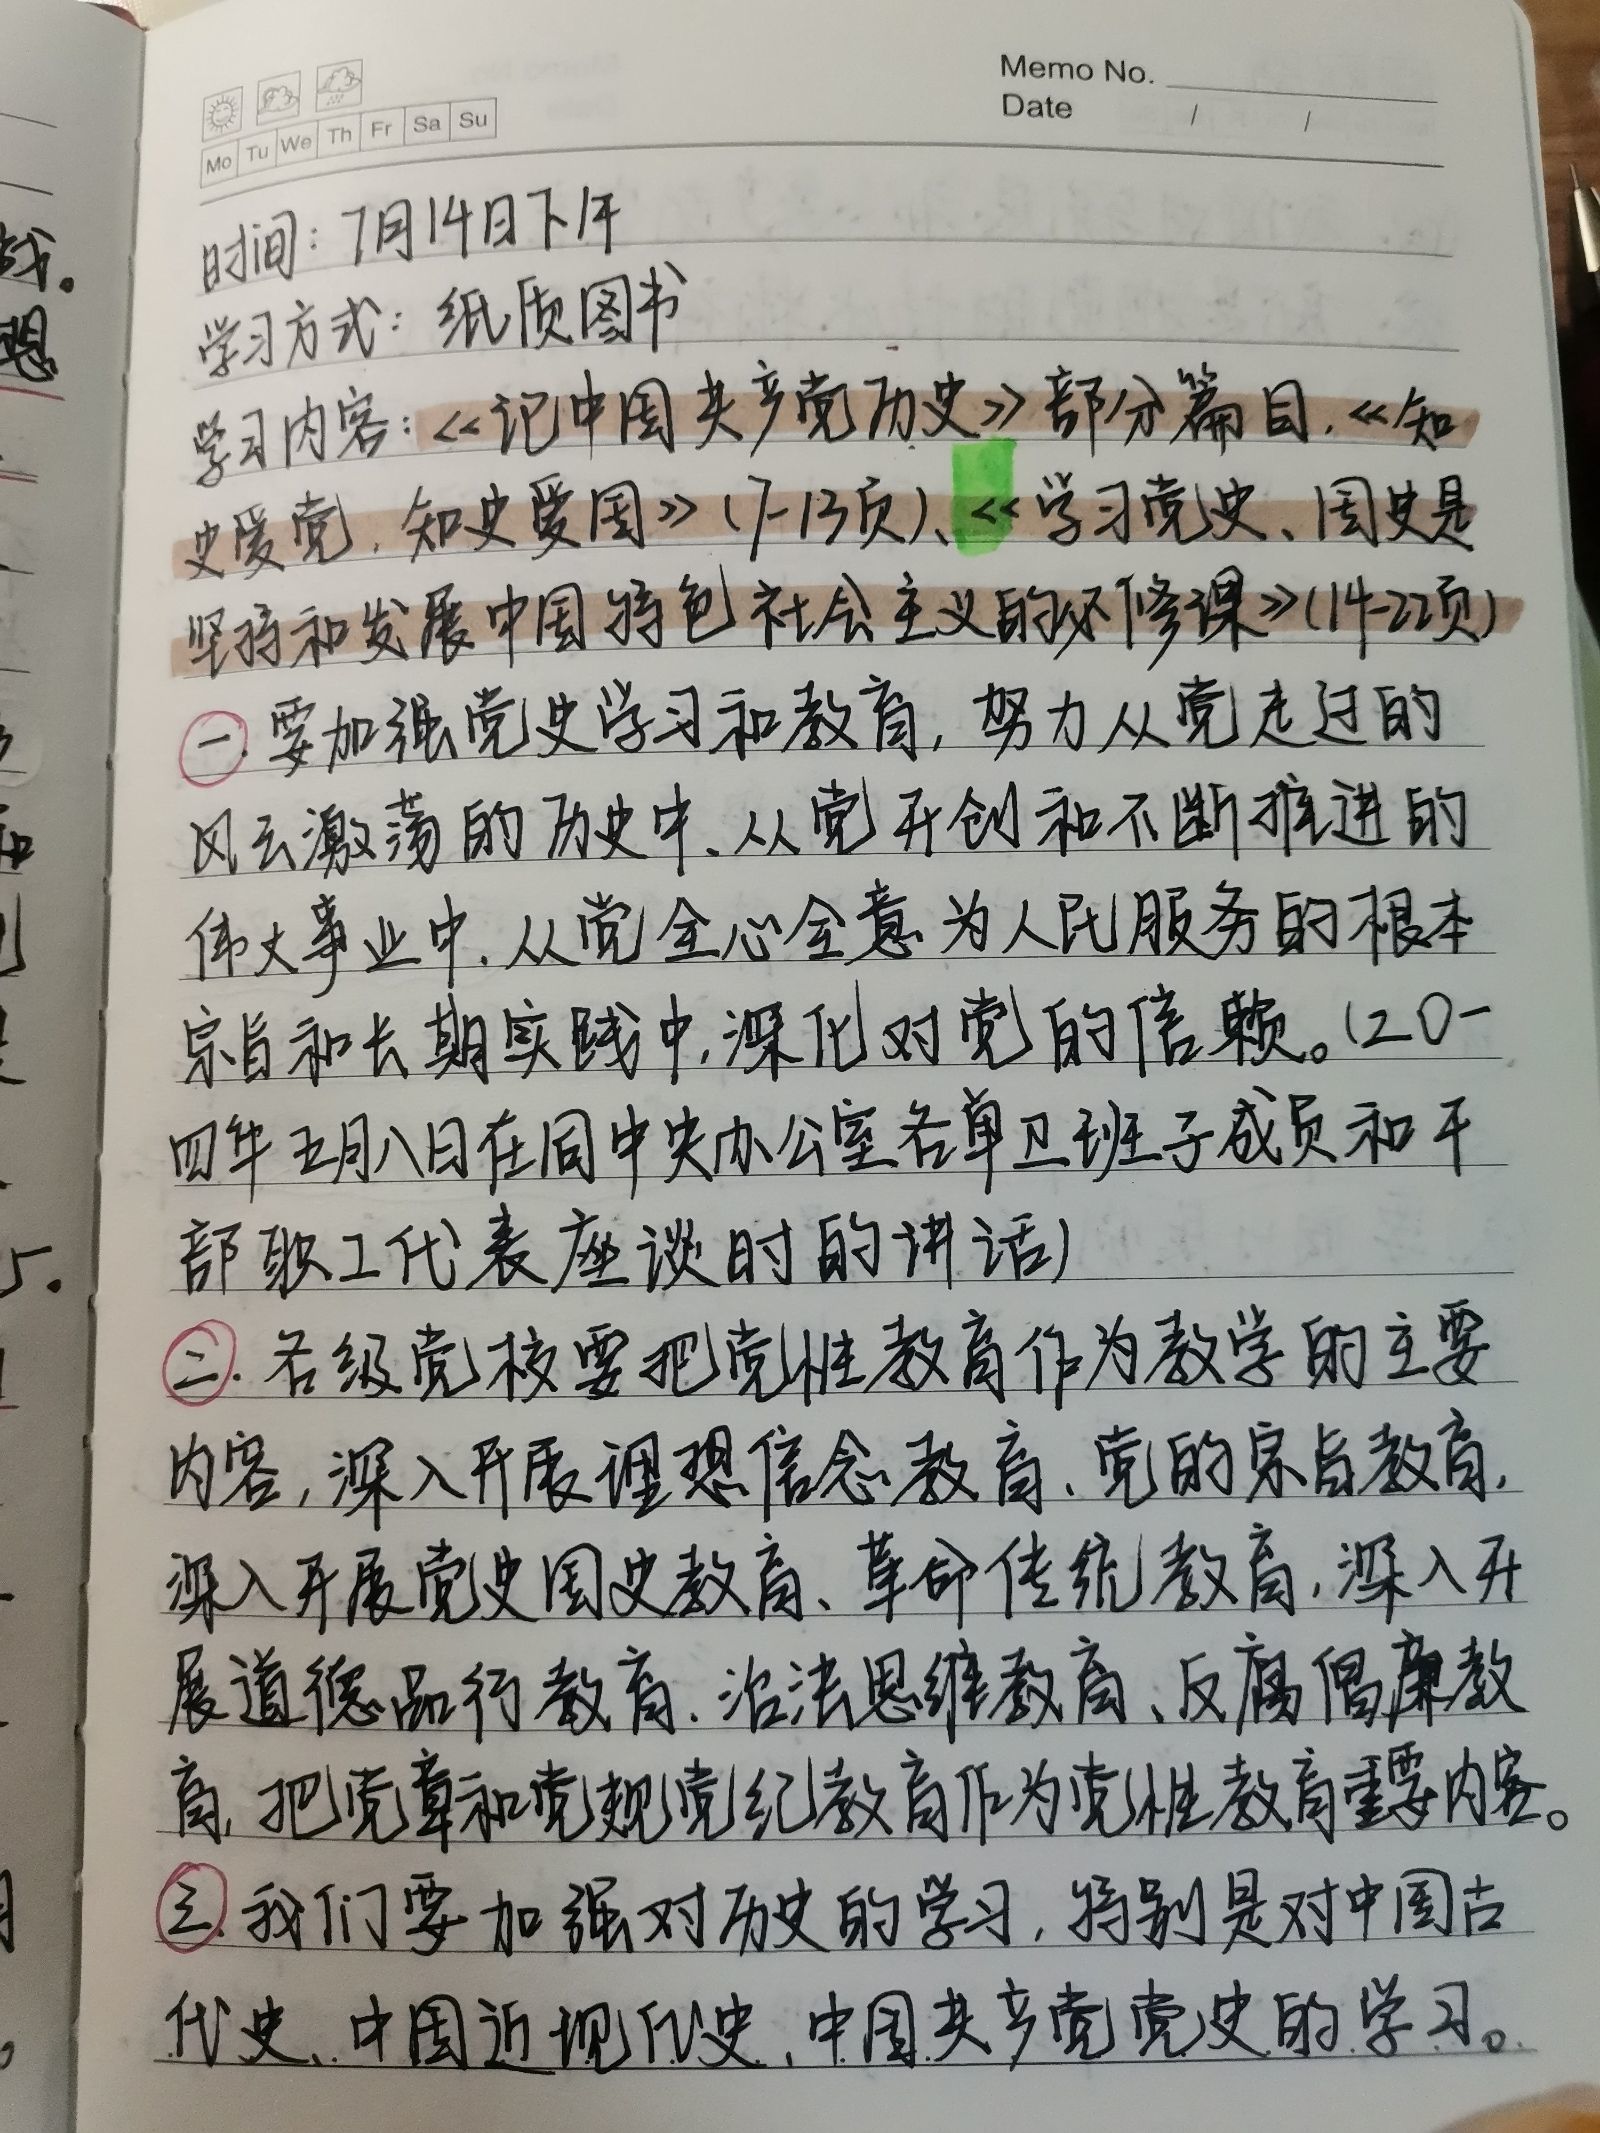 Memo No.
Date / /
Mo Tu We Th Fr Sa Su
时间：7月14日下午
学习方式：纸质图书
学习内容：《记中国共产党历史》部分篇目，《知
史爱党，知史爱国》（7-13页）、《学习党史、国史是
坚持和发展中国特色社会主义的必修课》（14-22页）
一.要加强党史学习和教育，努力从党走过的
风云激荡的历史中、从党开创和不断推进的
伟大事业中、从党全心全意为人民服务的根本
宗旨和长期实践中，深化对党的信赖。（20一
四年五月八日在同中央办公室各单卫班子成员和干
部职工代表座谈时的讲话）
二.各级党校要把党性教育作为教学的主要
内容，深入开展理想信念教育、党的宗旨教育，
深入开展党史国史教育、革命传统教育，深入开
展道德品行教育、治法思维教育、反腐倡廉教
育，把党章和党规党纪教育作为党性教育重要内容。
三.我们要加强对历史的学习，特别是对中国古
代史、中国近现代史、中国共产党党史的学习。